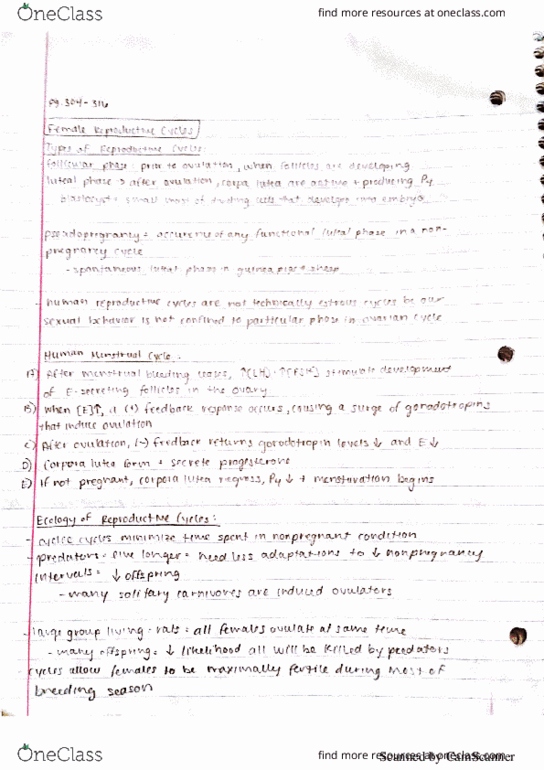 OneClass
find more resources at oneclass.com
pg. 304-316
Female Reproductive Cycles
Types of Reproductive Cycles:
follicular phase: prior to ovulation, when follicles are developing
luteal phase → after ovulation, corpa lutea are active + producing P4
blastocyst = small mass of dividing cells that develops into embryo
pseudopregnancy = occurence of any functional luteal phase in a non-
pregnancy cycle
- spontaneous luteal phase in guinea pigs + sheep
- human reproductive cycles are not technically estrous cycles bc our
sexual behavior is not confined to particular phase in ovarian cycle
Human Menstrual Cycle:
A) After menstrual bleeding ceases, ↑[LH] + ↑[FSH] stimulate development
of E-secreting follicles in the ovary
B) When [E]↑, a (+) feedback response occurs, causing a surge of gonadotropins
that induce ovulation
C) After ovulation, (-) feedback returns gonadotropin levels ↓ and E↓
D) Corpora lutea form + secrete progesterone
E) If not pregnant, corpora lutea regress, P4 ↓ + menstruation begins
Ecology of Reproductive Cycles:
- cycles minimize time spent in nonpregnant condition
- predators = live longer = need less adaptations to ↓ nonpregnancy
intervals = ↓ offspring
- many solitary carnivores are induced ovulators
- large group living - rats = all females ovulate at same time
- many offspring = ↓ likelihood all will be killed by predators
cycles allow females to be maximally fertile during most of
breeding season
OneClass
find more resources at oneclass.com
Scanned by CamScanner